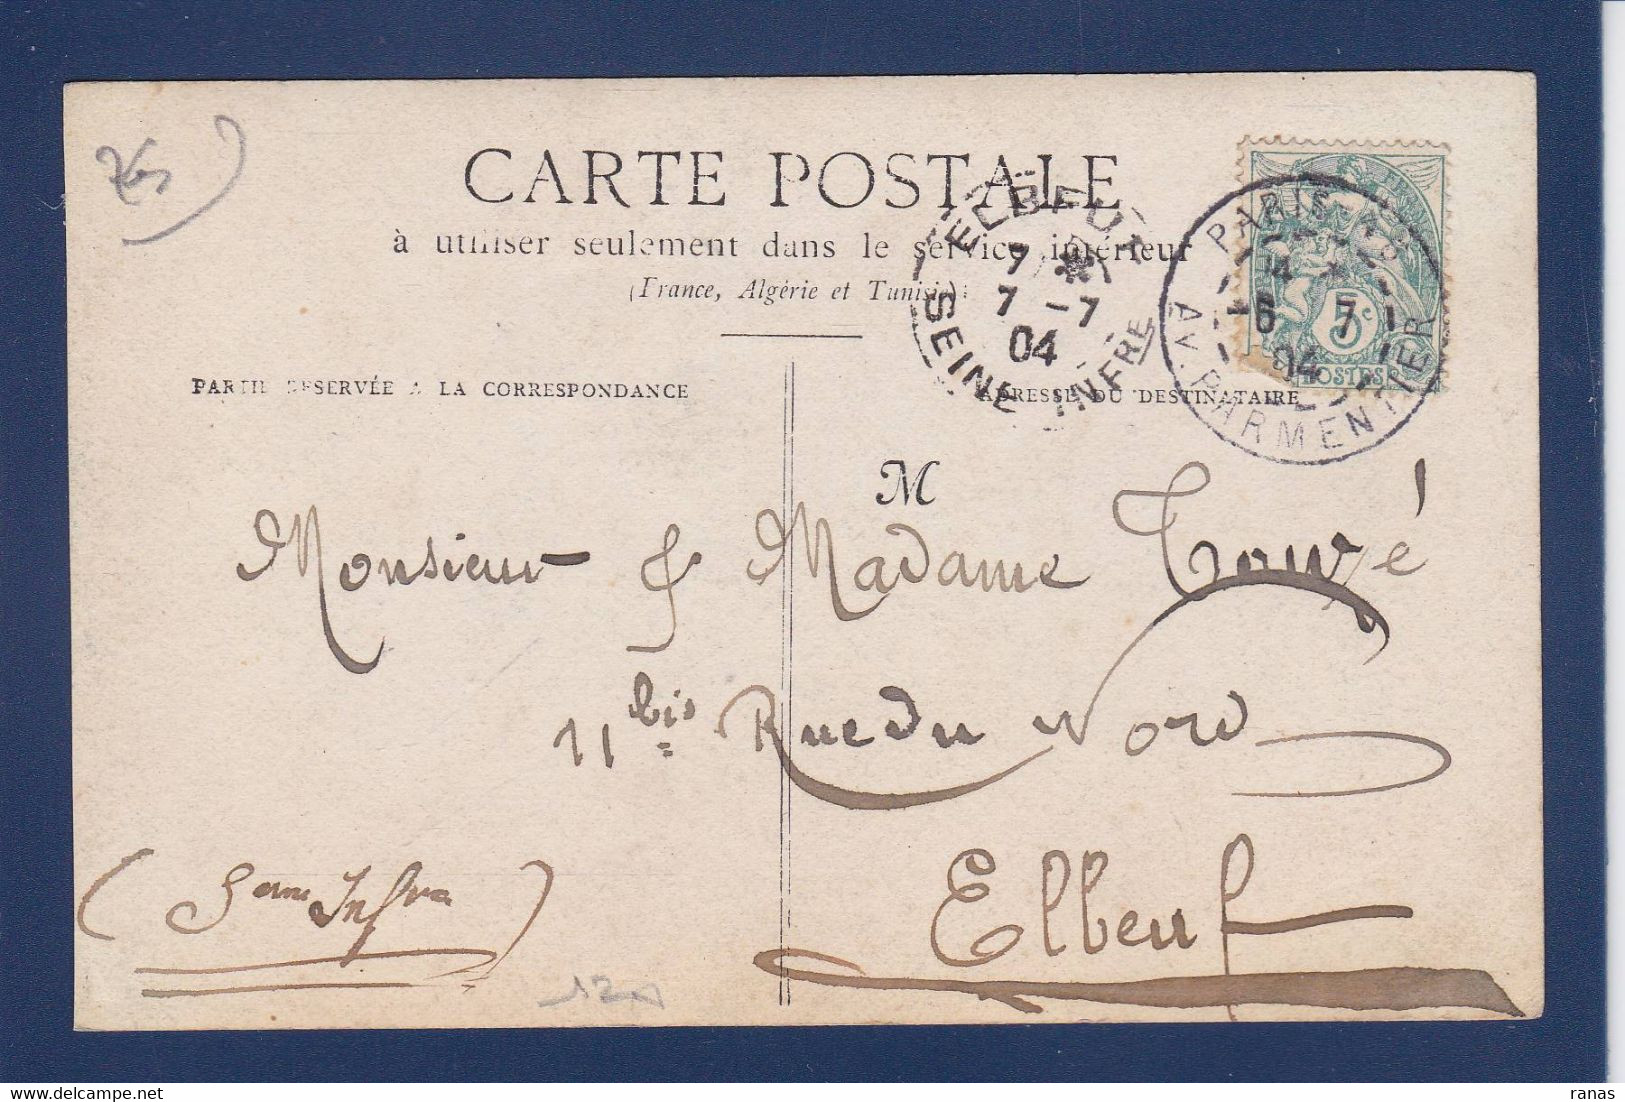 CARTE POSTALE
à utiliser seulement dans le service intérieur
(France, Algérie et Tunisie)
PARTIE RÉSERVÉE A LA CORRESPONDANCE
ADRESSE DU DESTINATAIRE
ELBEUF
7 *
7 -7
04
SEINE INFRE
PARIS
4 *
-6 7
04
AV. PARMENTIER
5c
POSTES
M
Monsieur & Madame Touzé
11 bis Rue du Nord
Elbeuf
(Seine Infre)
www.delcampe.net
ranas